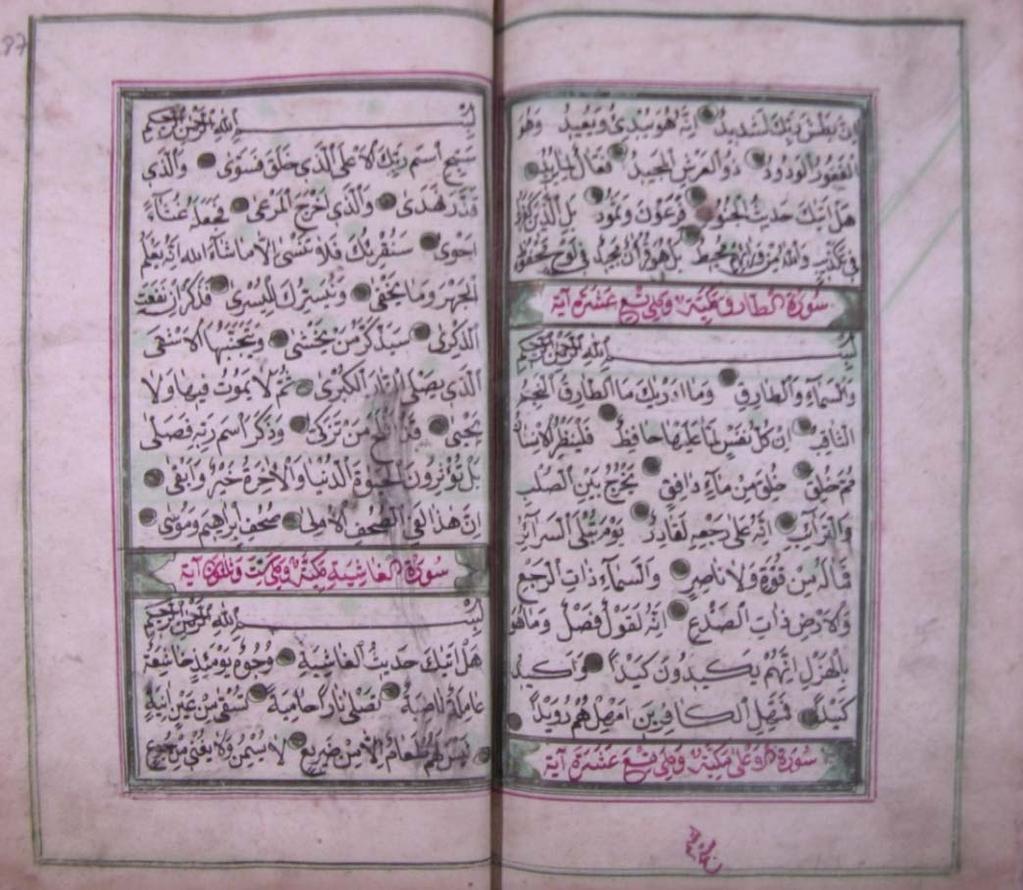 ان بطش ربك لشديد انه هو يبدئ ويعيد وهو
الغفور الودود ذو العرش المجيد فعال لما يريد
هل اتيك حديث الجنود فرعون وثمود بل الذين كفروا
في تكذيب والله من ورائهم محيط بل هو قرآن مجيد في لوح محفوظ
سورة الطارق مكية وهي تسع عشرة آية
بسم الله الرحمن الرحيم
والسماء والطارق وما ادريك ما الطارق النجم
الثاقب ان كل نفس لما عليها حافظ فلينظر الانسان
مم خلق خلق من ماء دافق يخرج من بين الصلب
والترائب انه على رجعه لقادر يوم تبلى السرائر
فماله من قوة ولا ناصر والسماء ذات الرجع
والارض ذات الصدع انه لقول فصل وما هو
بالهزل انهم يكيدون كيدا واكيد
كيدا فمهل الكافرين امهلهم رويدا
سورة الاعلى مكية وهي تسع عشرة آية
بسم الله الرحمن الرحيم
سبح اسم ربك الاعلى الذي خلق فسوى والذي
قدر فهدى والذي اخرج المرعى فجعله غثاء
احوى سنقرئك فلا تنسى الا ما شاء الله انه يعلم
الجهر وما يخفى ونيسرك لليسرى فذكر ان نفعت
الذكرى سيذكر من يخشى ويتجنبها الاشقى
الذي يصلى النار الكبرى ثم لا يموت فيها ولا
يحيى قد افلح من تزكى وذكر اسم ربه فصلى
بل تؤثرون الحيوة الدنيا والاخرة خير وابقى
ان هذا لفي الصحف الاولى صحف ابراهيم وموسى
سورة الغاشية مكية وهي ست وعشرون آية
بسم الله الرحمن الرحيم
هل اتيك حديث الغاشية وجوه يومئذ خاشعة
عاملة ناصبة تصلى نارا حامية تسقى من عين انية
ليس لهم طعام الا من ضريع لا يسمن ولا يغني من جوع